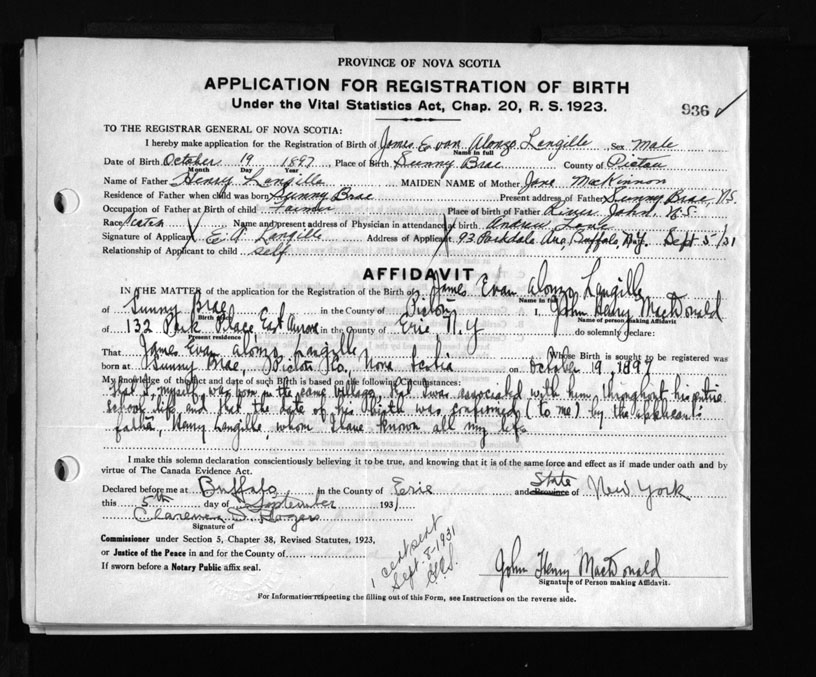 PROVINCE OF NOVA SCOTIA
APPLICATION FOR REGISTRATION OF BIRTH
Under the Vital Statistics Act, Chap. 20, R. S. 1923.
936 ✓
TO THE REGISTRAR GENERAL OF NOVA SCOTIA:
I hereby make application for the Registration of Birth of James Evan Alonzo Langille, Sex Male
Name in full
Date of Birth October 19 1897 Place of Birth Sunny Brae County of Pictou
Month Day Year
Name of Father Henry Langille MAIDEN NAME of Mother Jane MacKinnon
Residence of Father when child was born Sunny Brae Present address of Father Sunny Brae, N.S.
Occupation of Father at Birth of child Farmer Place of birth of Father River John, N.S.
Race Name and present address of Physician in attendance at birth. Andrew
Signature of Applicant E. A. Langille Address of Applicant 93 Parkdale Ave Buffalo, N.Y. Sept 5/31
Relationship of Applicant to child self
AFFIDAVIT
IN THE MATTER of the application for the Registration of the Birth of James Evan Alonzo Langille
Name in full
of Sunny Brae in the County of Pictou I, John Henry MacDonald
Birth place Name of person making Affidavit
of 132 Park Place East Aurora in the County of Erie N.Y do solemnly declare:
Present residence
That James Evan Alonzo Langille Whose Birth is sought to be registered was
born at Sunny Brae, Pictou Co., Nova Scotia on October 19, 1897
My knowledge of the fact and date of such Birth is based on the following circumstances:
That I, myself, was born in the same village, that I was associated with him throughout his entire
school life, and that the date of his birth was confirmed (to me) by the applicant's
father, Henry Langille, whom I have known all my life
I make this solemn declaration conscientiously believing it to be true, and knowing that it is of the same force and effect as if made under oath and by
virtue of The Canada Evidence Act.
Declared before me at Buffalo in the County of Erie and Province State of New York
this 5th day of September 1931
Clarence Rogers
Signature of
Commissioner under Section 5, Chapter 38, Revised Statutes, 1923,
or Justice of the Peace in and for the County of
If sworn before a Notary Public affix seal.
1 cert sent
Sept. 8-1931
John Henry MacDonald
Signature of Person making Affidavit.
For Information respecting the filling out of this Form, see Instructions on the reverse side.